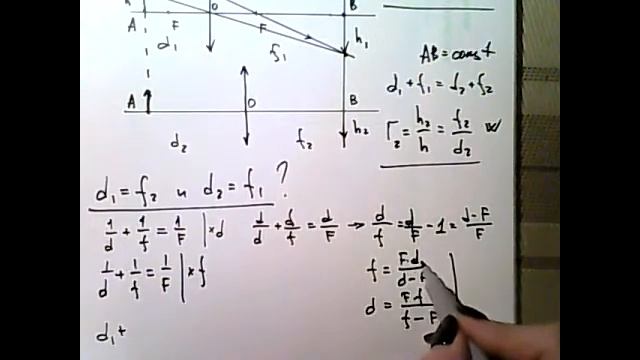 A F O F B
d₁ f₁ h₁
A O B
d₂ f₂ h₂
AB = const
d₁ + f₁ = f₂ + f₂
Γ₂ = h₂/h = f₂/d₂
d₁ = f₂ и d₂ = f₁ ?
1/d + 1/f = 1/F | ×d d/d + d/f = d/F → d/f = d/F - 1 = d-F/F
1/d + 1/f = 1/F | ×f f = F·d/d-F
d = F·f/f-F
d₁ +